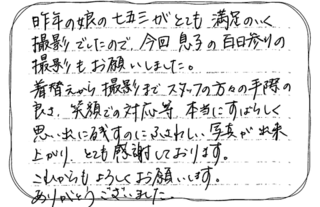 昨年の娘の七五三がとても満足のいく
撮影でしたので、今回息子の百日参りの
撮影もお願いしました。
着替えから撮影までスタッフの方々の手際の
良さ、笑顔での対応等、本当にすばらしく
思い出に残すのにふさわしい写真が出来
上がり、とても感謝しております。
これからもよろしくお願いします。
ありがとうございました。